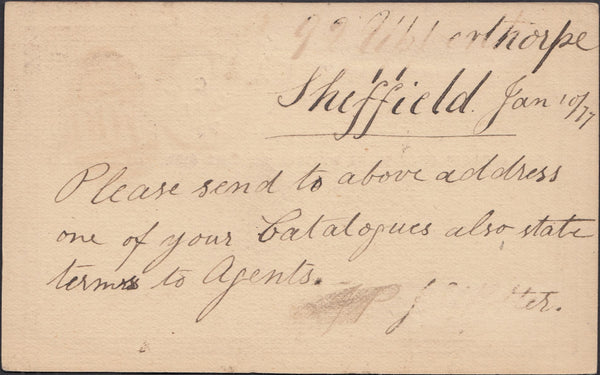 Sheffield. Jan 10/77
Please send to above address
one of your Catalogues also state
terms to Agents.